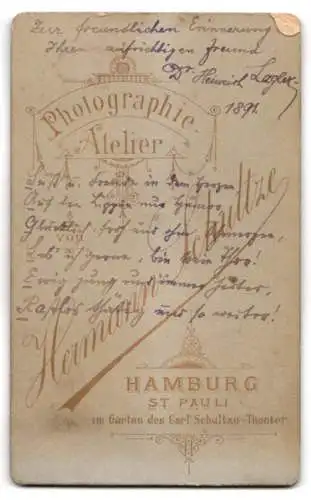 Zur freundlichen Erinnerung
Ihren aufrichtigen Freund
Dr Heinrich Lagler
1891.
Photographie-
Atelier
Lust u. Freude in dem Herzen,
Auf den Lippen nur Humor,
Glücklich, froh und ohne Schmerzen,
Leb ich gerne, bin kein Thor!
Ewig jung und immer heiter,
Rastlos thätig und so weiter!
von
Hermann Schultze
HAMBURG
ST PAULI
im Garten des Carl Schultze-Theater